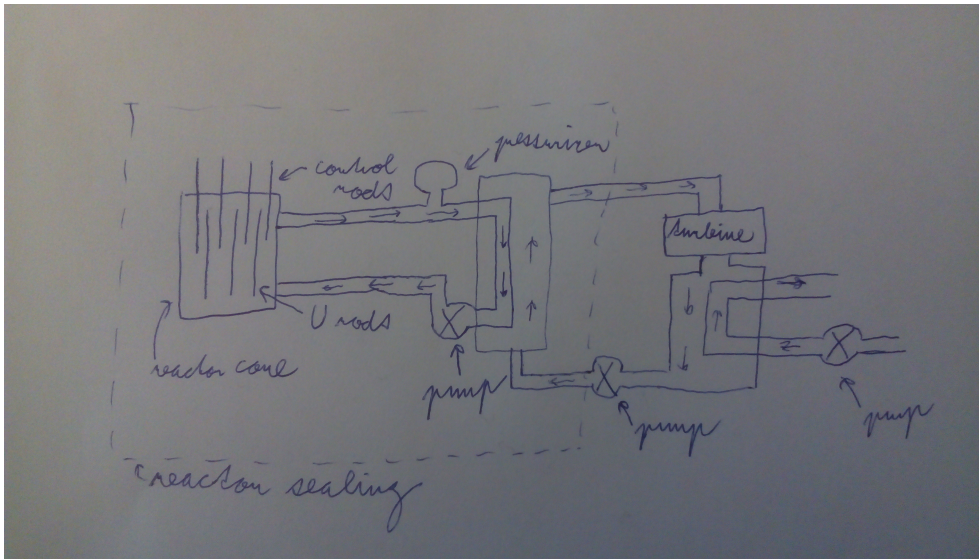 control
rods
pessurizer
turbine
U rods
reactor core
pump
pump
pump
reactor sealing